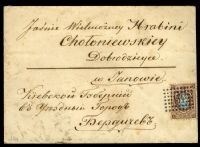 Jaśnie Wielmożney Hrabini
Chołoniewskiey
Dobrodzieyce
w Janowie
Кіевской Губерніи
въ Уѣздный Городъ
Бердичевъ